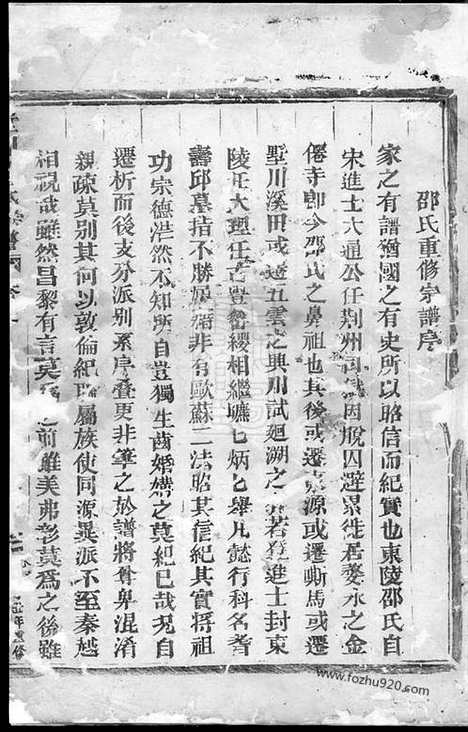 邵氏重修宗譜序
家之有譜猶國之有史所以昭信而紀實也東陵邵氏自
宋進士六通公任荆州司因脫囚避累徙居婺永之金
僊寺即今邵氏之鼻祖也其後或遷源或遷嘶馬或遷
墅川溪田或遊五雲之興用試廻溯之若登進士封東
陵任大理任簪纓相繼炳舉凡懿行科名著
壽邱墓指不勝屈稱非有歐蘇二法昭其信紀其實將祖
功宗德茫然不知所自豈獨生齒婚媾之莫紀已哉况自
遷析而後支分派别系序叠更非筆之於譜將尊卑混淆
親疎莫别其何以敦倫紀聯屬族使同源異派不至秦越
相視哉雖然昌黎有言莫爲之前雖美弗彰莫爲之後雖
年重修
www.fozhu920.com